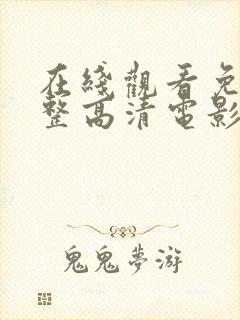 在綫觀看免
整高清電影
鬼鬼夢游